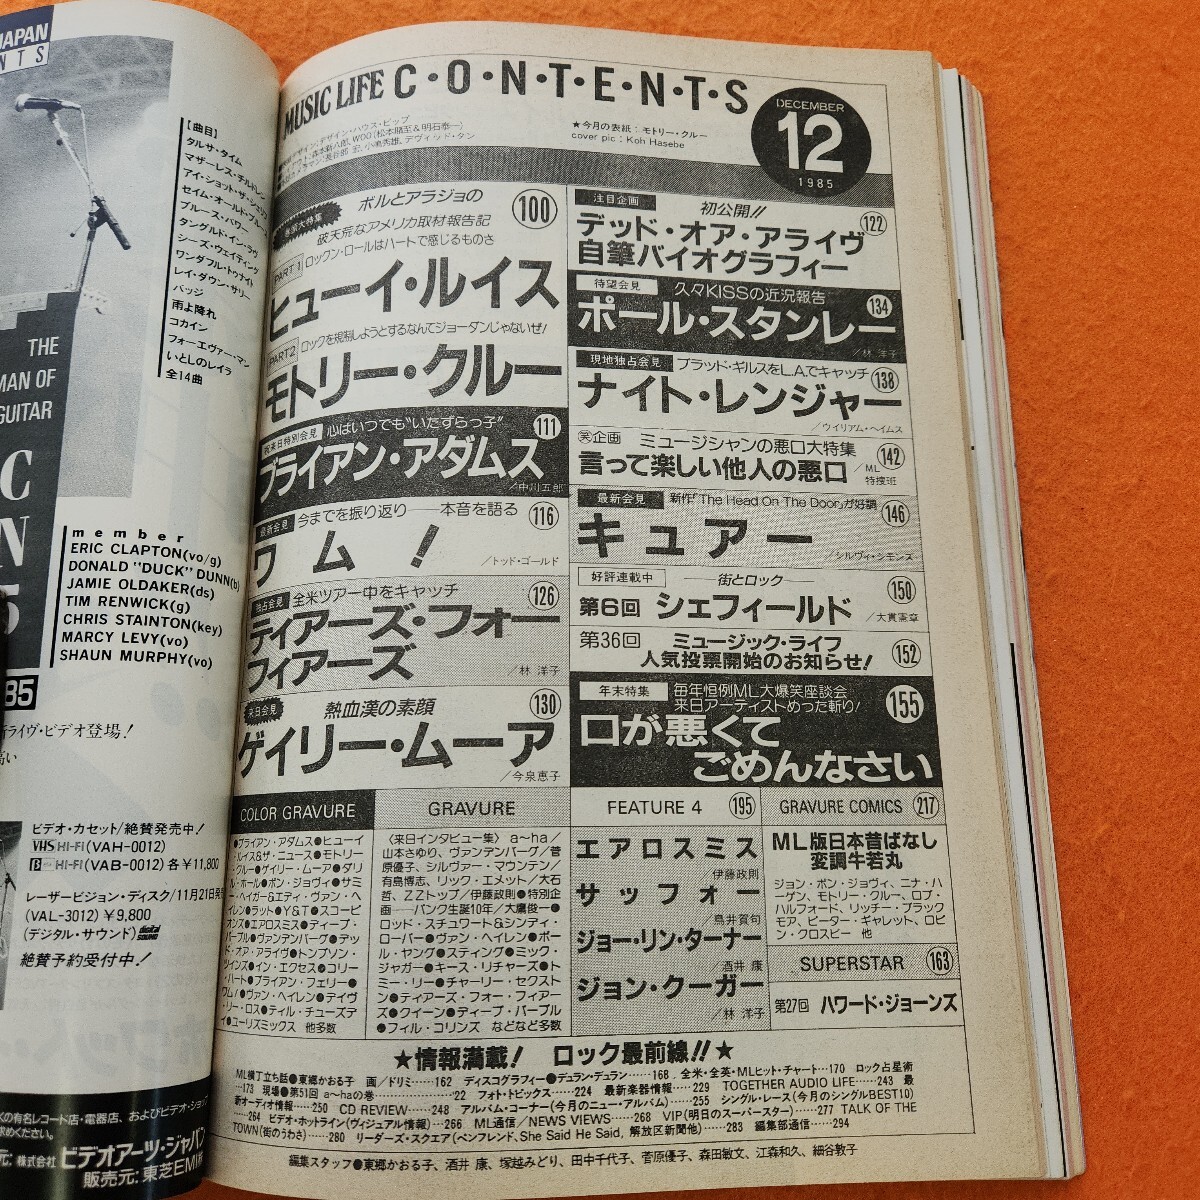 JAPAN
NTS
【曲目】
タルサ・タイム
マザーレス・チルドレン
アイ・ショット・ザ・シェリフ
セイム・オールド・ブルース
ブルース・パワー
タングルド・イン・ラヴ
シーズ・ウェイティング
ワンダフル・トゥナイト
レイ・ダウン・サリー
バッジ
雨よ降れ
コカイン
フォーエヴァー・マン
いとしのレイラ
全14曲
THE
MAN OF
GUITAR
member
ERIC CLAPTON(vo/g)
DONALD "DUCK" DUNN(b)
JAMIE OLDAKER(ds)
TIM RENWICK(g)
CHRIS STAINTON(key)
MARCY LEVY(vo)
SHAUN MURPHY(vo)
85
ライヴ・ビデオ登場!
ビデオ・カセット/絶賛発売中!
VHS HI-FI(VAH-0012)
β HI-FI(VAB-0012) 各¥11,800
レーザービジョン・ディスク/11月21日発売
(VAL-3012) ¥9,800
(デジタル・サウンド)
絶賛予約受付中!
の有名レコード店・電器店、およびビデオ・ショップ
求めください。
元:株式会社 ビデオアーツ・ジャパン
販売元:東芝EMI株
MUSIC LIFE C・O・N・T・E・N・T・S
DECEMBER
12
1985
★今月の表紙:モトリー・クルー
cover pic : Koh Hasebe
ボルとアラジョの
破天荒なアメリカ取材報告記
100
PART 1
ロックン・ロールはハートで感じるものさ
ヒューイ・ルイス
PART2
ロックを規制しようとするなんてジョーダンじゃないぜ!
モトリー・クルー
祝来日特別会見
心はいつでも"いたずらっ子"
111
ブライアン・アダムス
/中川五郎
最新会見
今までを振り返り――本音を語る
116
ワム!
/トッド・ゴールド
独占会見
全米ツアー中をキャッチ
126
ティアーズ・フォー・
フィアーズ
/林 洋子
来日会見
熱血漢の素顔
130
ゲイリー・ムーア
/今泉恵子
注目企画
初公開!!
122
デッド・オア・アライヴ
自筆バイオグラフィー
待望会見
久々KISSの近況報告
134
ポール・スタンレー
/林 洋子
現地独占会見
ブラッド・ギルスをL.A.でキャッチ
138
ナイト・レンジャー
/ウィリアム・ヘイムス
(笑)企画
ミュージシャンの悪口大特集
142
言って楽しい他人の悪口
/ML特捜班
最新会見
新作「The Head On The Door」が好調
146
キュアー
/シルヴィ・シモンズ
好評連載中
―街とロック―
150
第6回 シェフィールド
/大貫憲章
第36回 ミュージック・ライフ
人気投票開始のお知らせ!
152
年末特集
毎年恒例ML大爆笑座談会
来日アーティストめった斬り!
155
口が悪くて
ごめんなさい
COLOR GRAVURE
●ブライアン・アダムス●ヒューイ・
ルイス&ザ・ニュース●モトリー・
クルー●ゲイリー・ムーア●ダリ
ル・ホール●ボン・ジョヴィ●サミ
ー・ヘイガー&エディ・ヴァン・ヘ
イレン●ラット●Y&T●スコーピ
オンズ●エアロスミス●ディープ・
パープル●ヴァンデンバーグ●デッ
ド・オア・アライヴ●トンプソン・
ツインズ●イン・エクセス●コリー・
ハート●ブライアン・フェリー●
ワム!●ヴァン・ヘイレン●デイヴ
・リー・ロス●ティル・チューズデ
イ●ユーリズミックス 他多数
GRAVURE
〈来日インタビュー集〉 a～ha/
山本さゆり、ヴァンデンバーグ/菅
原優子、シルヴァー・マウンテン/
有島博志、リック・エメット/大石
哲、ZZトップ/伊藤政則●特別企
画――パンク生誕10年/大鷹俊一●
ロッド・スチュワート&シンディ・
ローパー●ヴァン・ヘイレン●ポー
ル・ヤング●スティング●ミック・
ジャガー●キース・リチャーズ●ト
ミー・リー●チャーリー・セクスト
ン●ティアーズ・フォー・フィアー
ズ●クイーン●ディープ・パープル
●フィル・コリンズ などなど多数
FEATURE 4
195
エアロスミス
伊藤政則
サッフォー
鳥井賀句
ジョー・リン・ターナー
酒井 康
ジョン・クーガー
/林 洋子
GRAVURE COMICS
217
ML版日本昔ばなし
変調牛若丸
ジョン・ボン・ジョヴィ、ニナ・ハ
ーゲン、モトリー・クルー、ロブ・
ハルフォード、リッチー・ブラック
モア、ピーター・ギャレット、ロビ
ン・クロスビー 他
SUPERSTAR
163
第27回 ハワード・ジョーンズ
★情報満載! ロック最前線!!★
ML横丁立ち話●東郷かおる子 画/ドリミ……162 ディスコグラフィー●デュラン・デュラン……168 全米・全英・MLヒット・チャート…170 ロック占星術
…173 現場●第51回 a～haの巻……22 フォト・トピックス……224 最新楽器情報……229 TOGETHER AUDIO LIFE……243 最
新オーディオ情報……250 CD REVIEW……248 アルバム・コーナー(今月のニュー・アルバム)……255 シングル・レース(今月のシングルBEST10)
……264 ビデオ・ホットライン(ヴィジュアル情報)……266 ML通信/NEWS VIEWS……268 VIP(明日のスーパースター)……277 TALK OF THE
TOWN(街のうわさ)……280 リーダーズ・スクエア(ペンフレンド、She Said He Said, 解放区新聞他)……283 編集部通信……294
編集スタッフ●東郷かおる子、酒井 康、塚越みどり、田中千代子、菅原優子、森田敏文、江森和久、細谷敦子